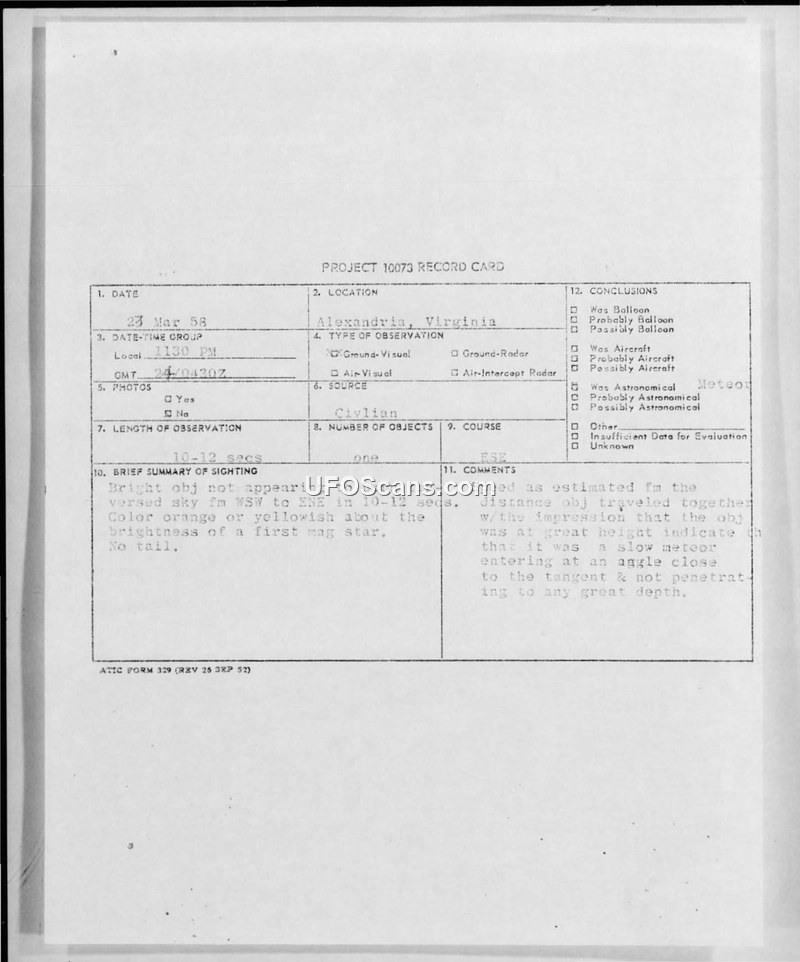 PROJECT 10073 RECORD CARD
1. DATE
23 Mar 58
2. LOCATION
Alexandria, Virginia
3. DATE-TIME GROUP
Local 1130 PM
GMT 24/0430Z
4. TYPE OF OBSERVATION
Ground-Visual
Ground-Radar
Air-Visual
Air-Intercept Radar
5. PHOTOS
Yes
No
6. SOURCE
Civlian
7. LENGTH OF OBSERVATION
10-12 secs
8. NUMBER OF OBJECTS
one
9. COURSE
ESE
12. CONCLUSIONS
Was Balloon
Probably Balloon
Possibly Balloon
Was Aircraft
Probably Aircraft
Possibly Aircraft
Was Astronomical Meteor
Probably Astronomical
Possibly Astronomical
Other
Insufficient Data for Evaluation
Unknown
10. BRIEF SUMMARY OF SIGHTING
Bright obj not
versed sky fm WSW to ENE in 10-12 secs.
Color orange or yellowish about the
brightness of a first mag star.
No tail.
11. COMMENTS
as estimated fm the
distance obj traveled together
w/the impression that the obj
was at great height indicate th
that it was a slow meteor
entering at an aggle close
to the tangent & not penetrat-
ing to any great depth.
UFOScans.com
ATIC FORM 329 (REV 26 SEP 52)